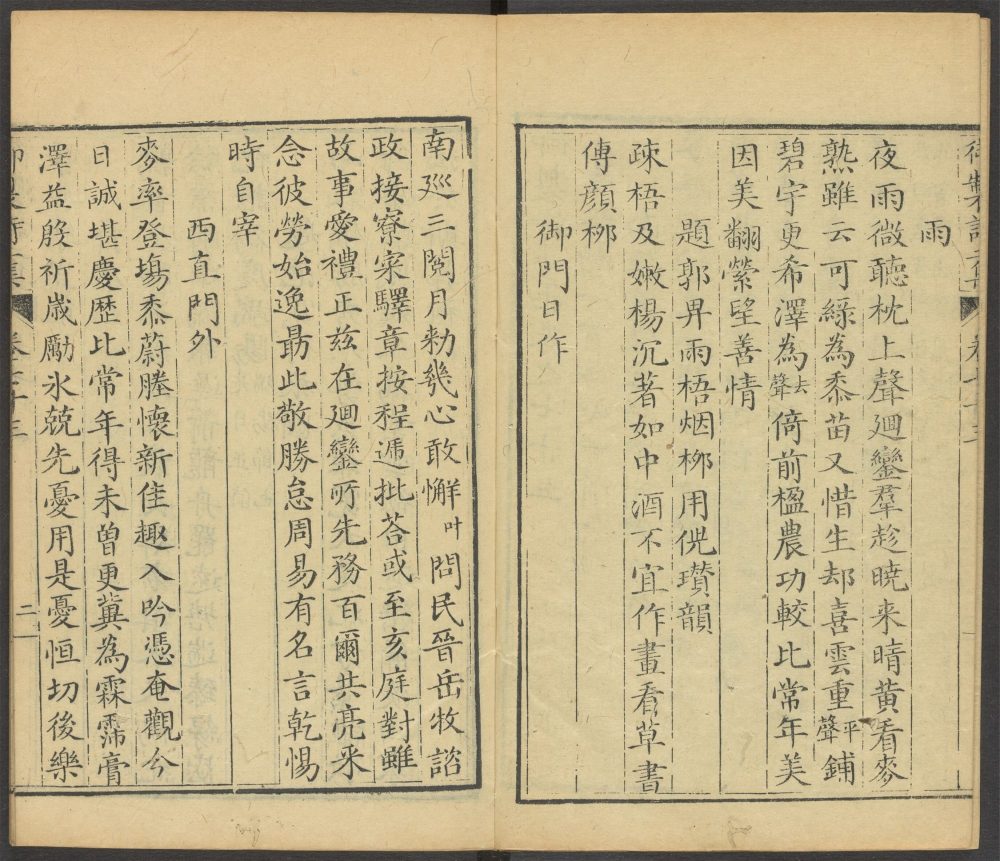 雨
夜雨微聽枕上聲廻鑾羣趁曉来晴黄看麥
熟雖云可綠為黍苗又惜生却喜雲重平聲鋪
碧宇更希澤為去聲倚前楹農功較比常年美
因美翻縈望善情
題郭畀雨梧烟栁用倪瓚韻
疎梧及嫩楊沉著如中酒不宜作畫看草書
傳顔栁
御門日作
南廵三閱月勑幾心敢懈叶問民晉岳牧諮
政接寮寀驛章按程遞批荅或至亥庭對雖
故事愛禮正兹在廻鑾所先務百爾共亮采
念彼勞始逸勗此敬勝怠周易有名言乾惕
時自宰
西直門外
麥率登塲黍蔚塍懷新佳趣入吟憑奄觀今
日誠堪慶歴比常年得未曽更冀為霖霈膏
澤益殷祈嵗勵氷兢先憂用是憂恒切後樂
二